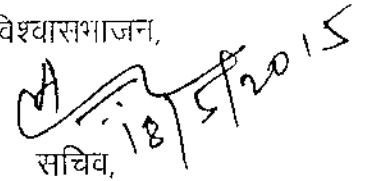 विश्वासभाजन,
18/5/2015
सचिव,